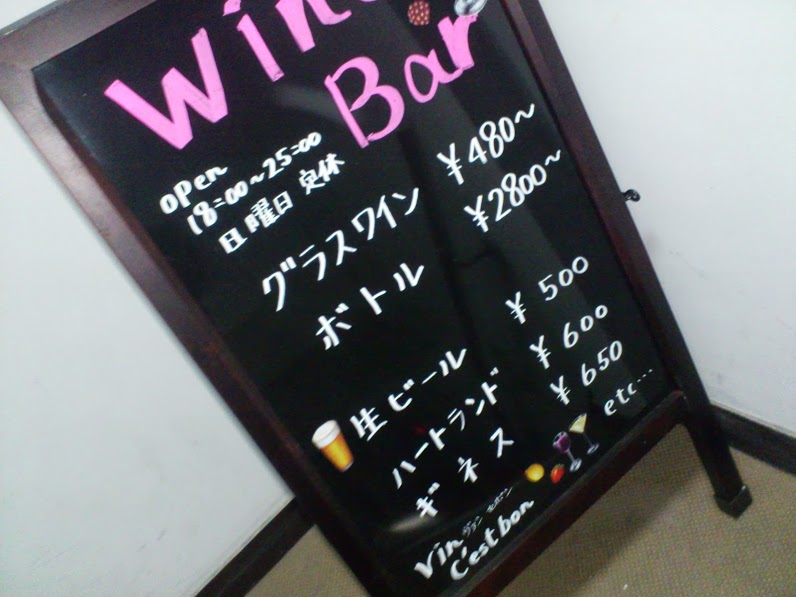 Wine
Bar
open
18:00~25:00
日曜日 定休
グラスワイン ¥480~
ボトル ¥2800~
生ビール ¥500
ハートランド ¥600
ギネス ¥650
etc…
Vin
C'est bon